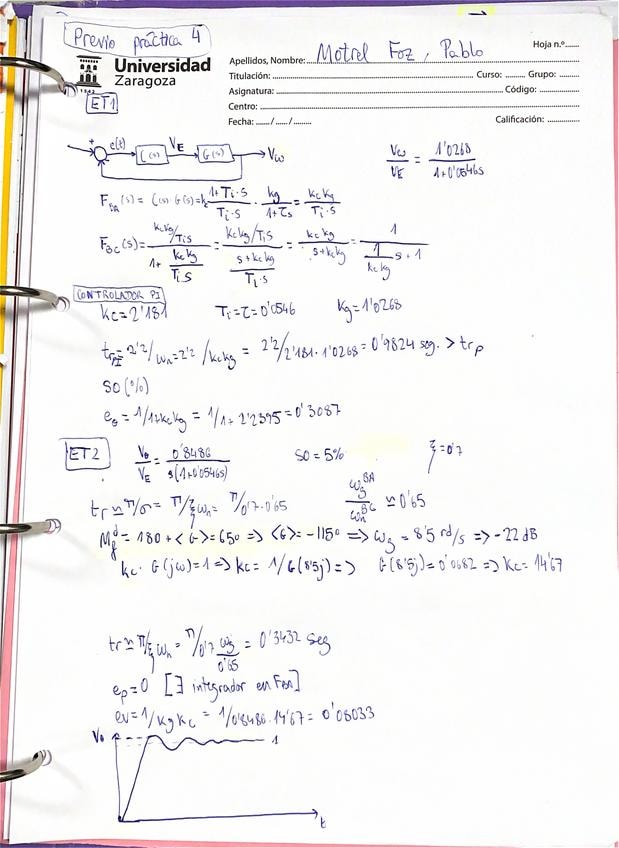 Previo práctica 4
Hoja n.º
Universidad
Zaragoza
1542
Apellidos, Nombre: Motrel Foz, Pablo
Titulación: Curso: Grupo:
Asignatura: Código:
Centro:
Fecha: / / Calificación:
ET1
+ e(t) C(s) VE G(s) Vω
Vω/VE = 1'0268/1+0'0546s
F_BA(s) = C(s)·G(s) = kc 1+Ti·s/Ti·s · kg/1+τs = kc kg/Ti·s
F_BC(s) = kc kg/Ti s / 1+ kc kg/Ti s = kc kg/Ti s / s+kc kg/Ti·s = kc kg/s+kc kg = 1 / 1/kc kg s+1
CONTROLADOR PI
kc = 2'181 Ti = τ = 0'0546 kg = 1'0268
tr_PI = 2'2/ωn = 2'2/kc kg = 2'2/2'181·1'0268 = 0'9824 seg. > tr_p
SO (%)
e_θ = 1/1+kc kg = 1/1+2'2395 = 0'3087
ET2
Vθ/VE = 0'8486/s(1+0'0546s) SO = 5% ξ = 0'7
tr ≃ π/σ = π/ξωn = π/0'7·0'65 ωg^BA/ωn^BC ≃ 0'65
Mf^d = 180 + <G> = 65º => <G> = -115º => ωg = 8'5 rd/s => -22 dB
kc · G(jω) = 1 => kc = 1/G(8'5j) => G(8'5j) = 0'0682 => kc = 14'67
tr ≃ π/ξωn = π/0'7 ωg/0'65 = 0'3432 seg
ep = 0 [∃ integrador en F_BA]
ev = 1/kg kc = 1/0'8486·14'67 = 0'08033
Vθ
1
t